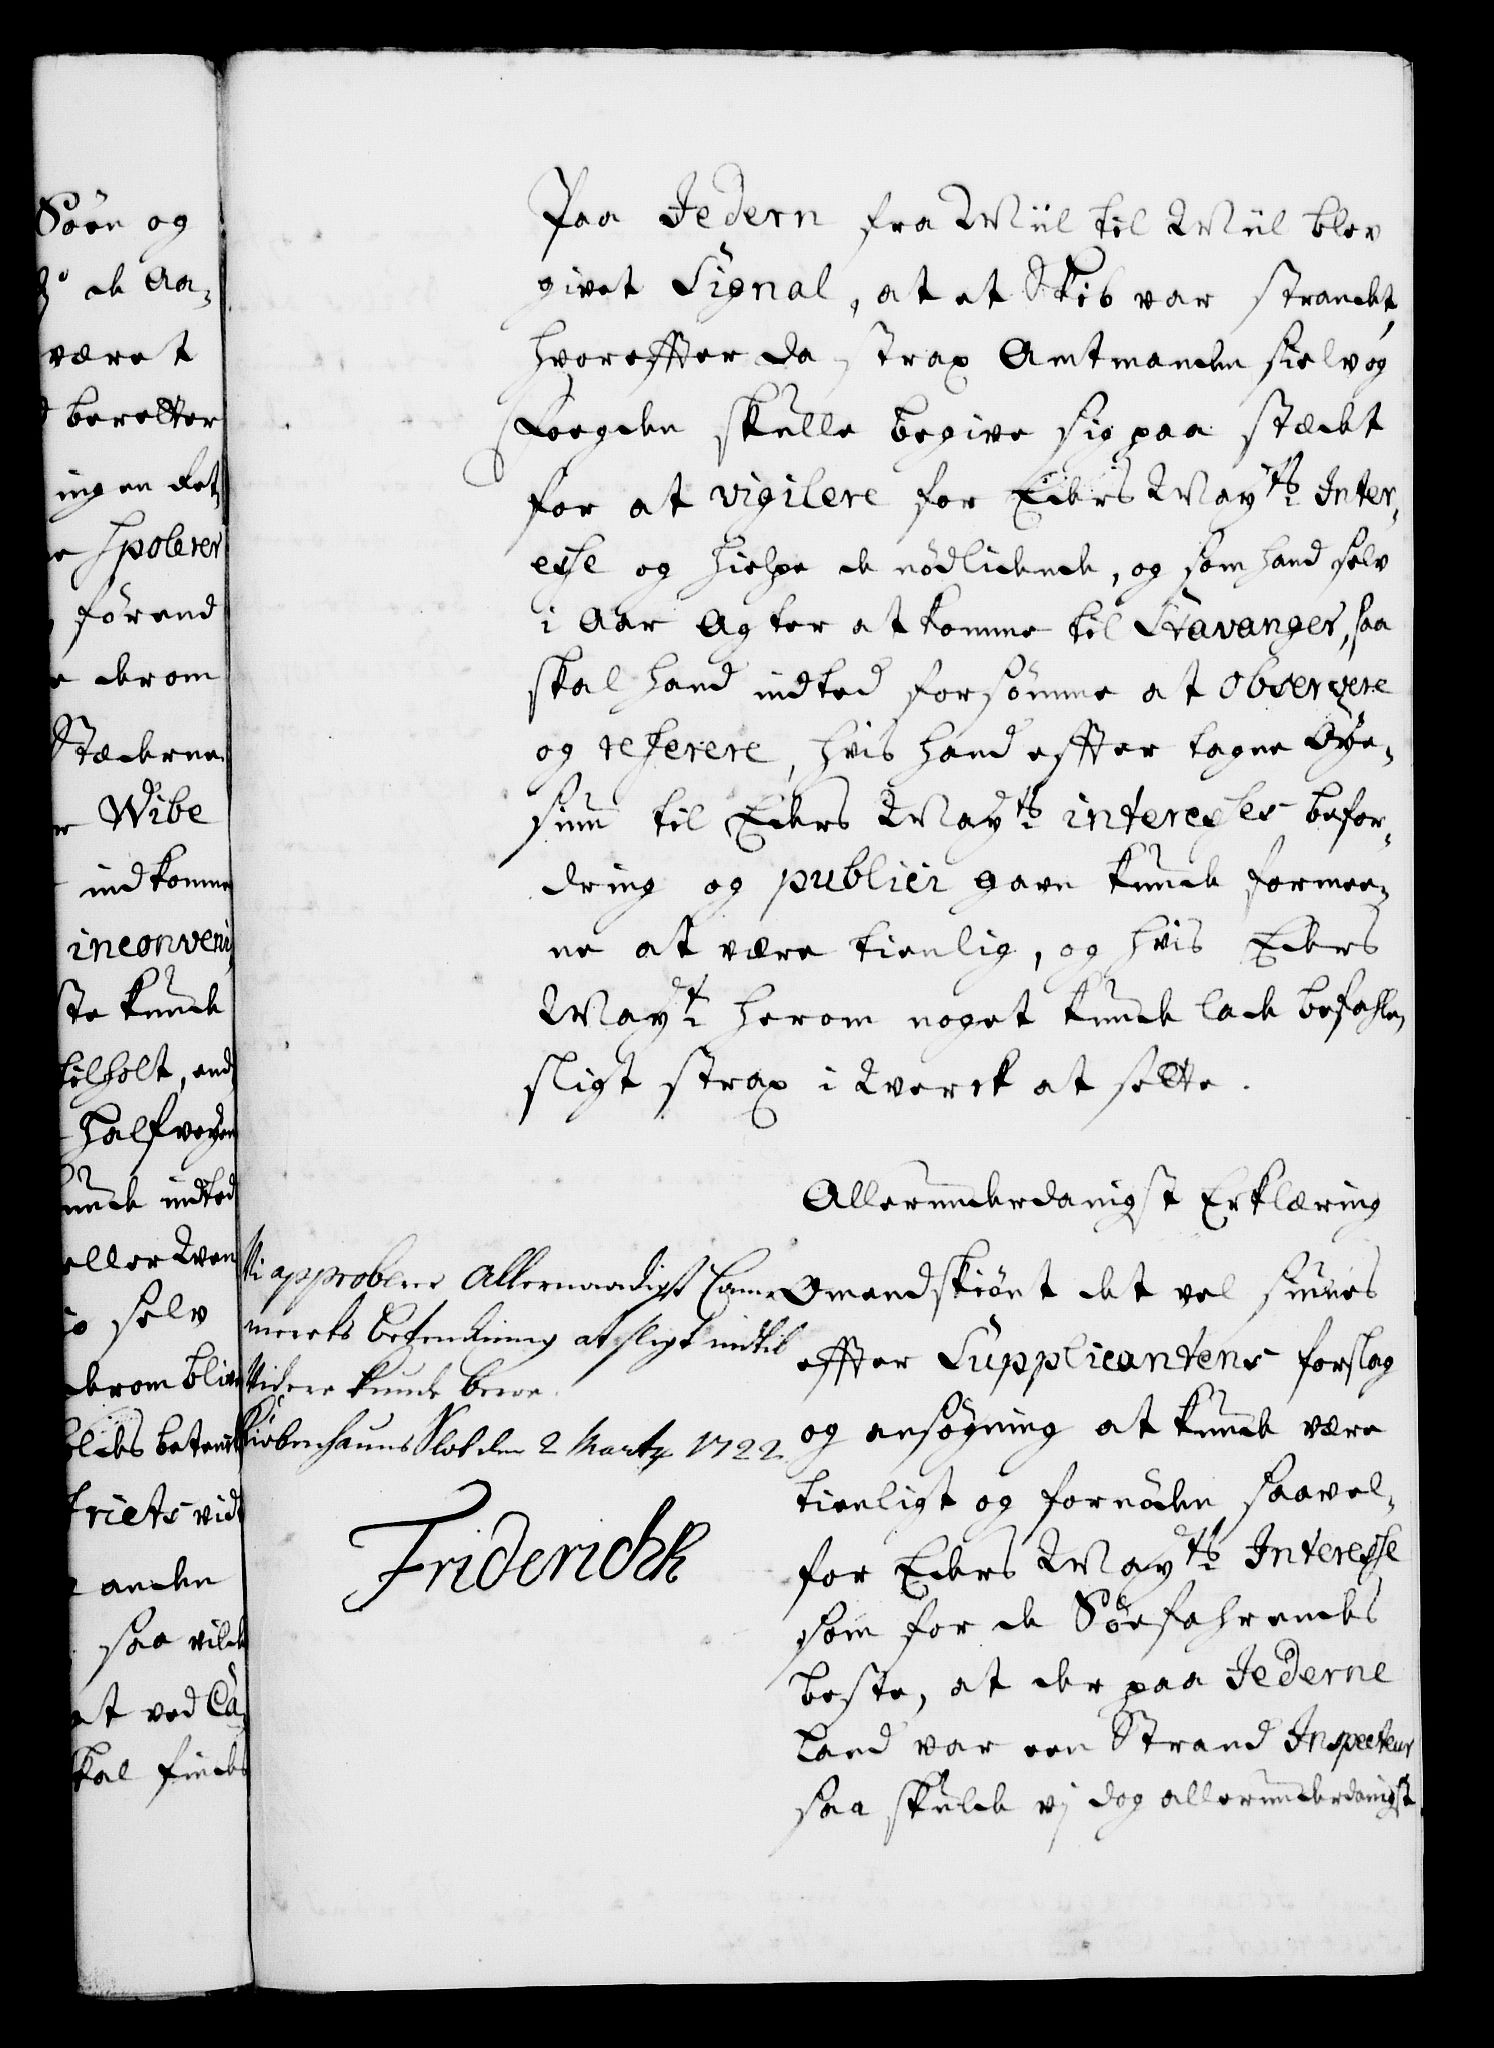 Söen og
de Aa-
været
beretter
ingen det
spolerer
förend
derom
Stæderne
Wibe
indkomme
inconveni
ste kunde
tilholt, end
halfveyen
kunde indted
eller Wen
selv
derom blive
betenk
triets vidt
anden
saa vilde
at ved Ca
skal findes
Paa Jedern fra Miil til Miil blev
givet Signal, at et Skib var strandt,
hvoreffter da strax Amtmanden sielv og
Foegden skulle begive sig paa stædet
for at vigilere for Eders Mayts Inter-
esse og hielpe de nödlidende, og som hand selv
i Aar agter at komme til Stavanger, saa
skal hand indted forsömme at observere
og referere, hvis hand effter tagne Öye-
siun til Eders Mayts interesses befor-
dring og publici gavn kunde formee-
ne at være tienlig, og hvis Eders
Mayt herom noget kunde lade befahle,
sligt strax i Werck at sette.
Allerunderdanigst Erklæring
Omendskiönt det vel siunes
effter Supplicantens forslag
og ansögning at kunde være
tienligt og fornöden saavel-
for Eders Mayts Interesse
som for de Söefahrendes
beste, at der paa Jederne
Land var een Strand Inspecteur
saa skulde vj dog allerunderdanigst
Vi approberer Allernaadigst Cam-
merets Betenkning at sligt indtil
Videre kunde beroe.
Kiöbenhauns Slot den 2 Marty 1722.
Friderich R